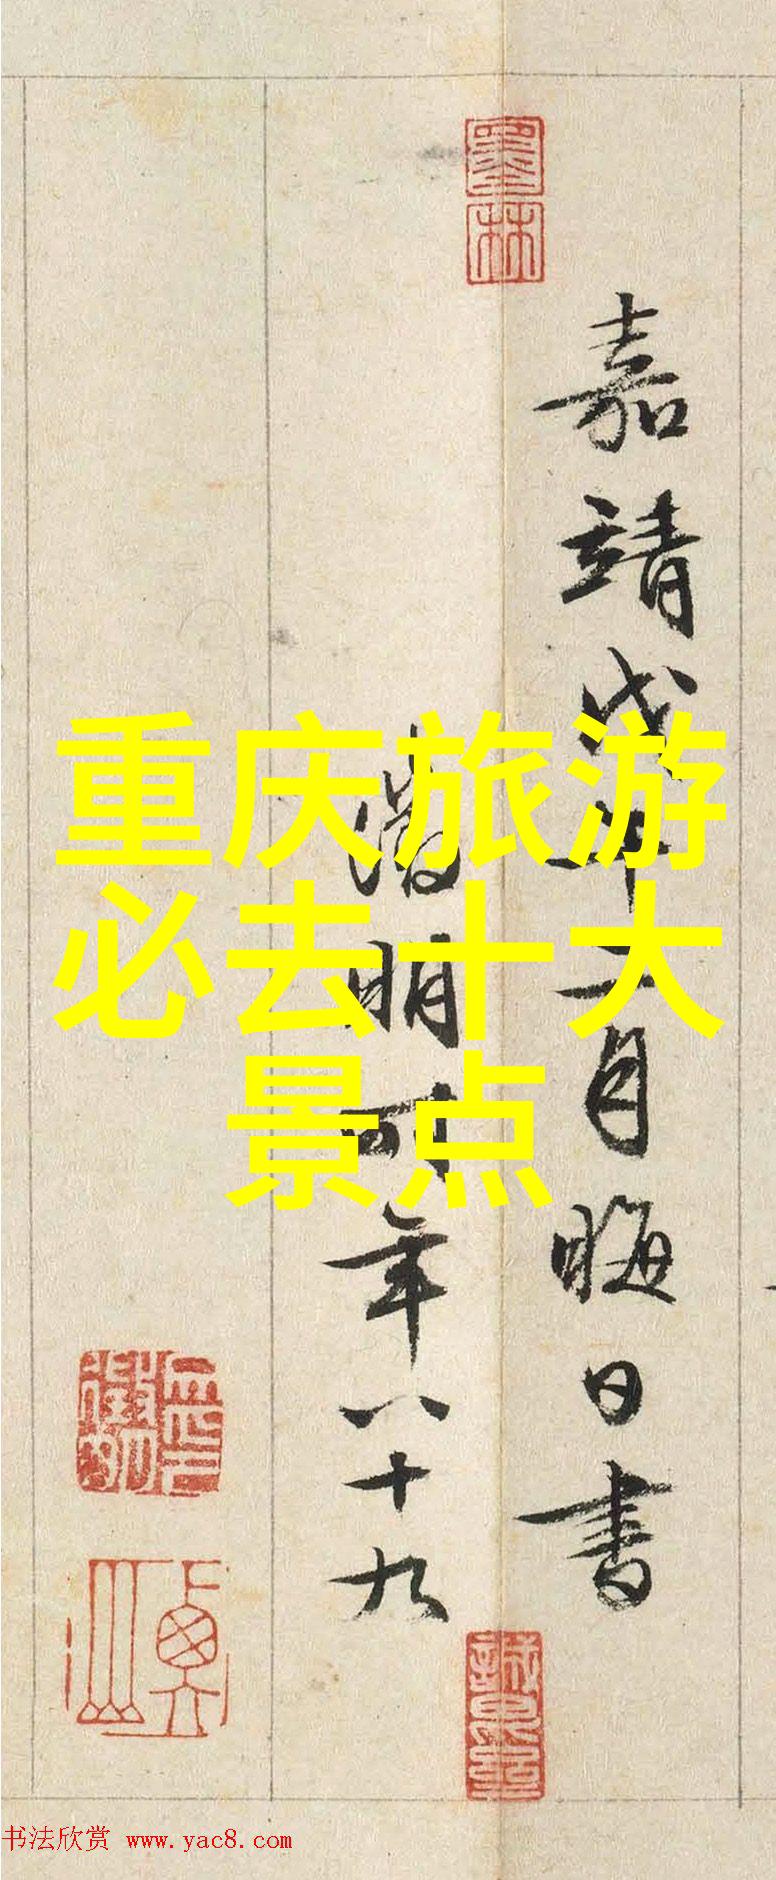 嘉靖戊午二月晦日書
徵明時年八十九
重庆旅游
必去十大
景点
墨林
书法欣赏 www.yac8.com